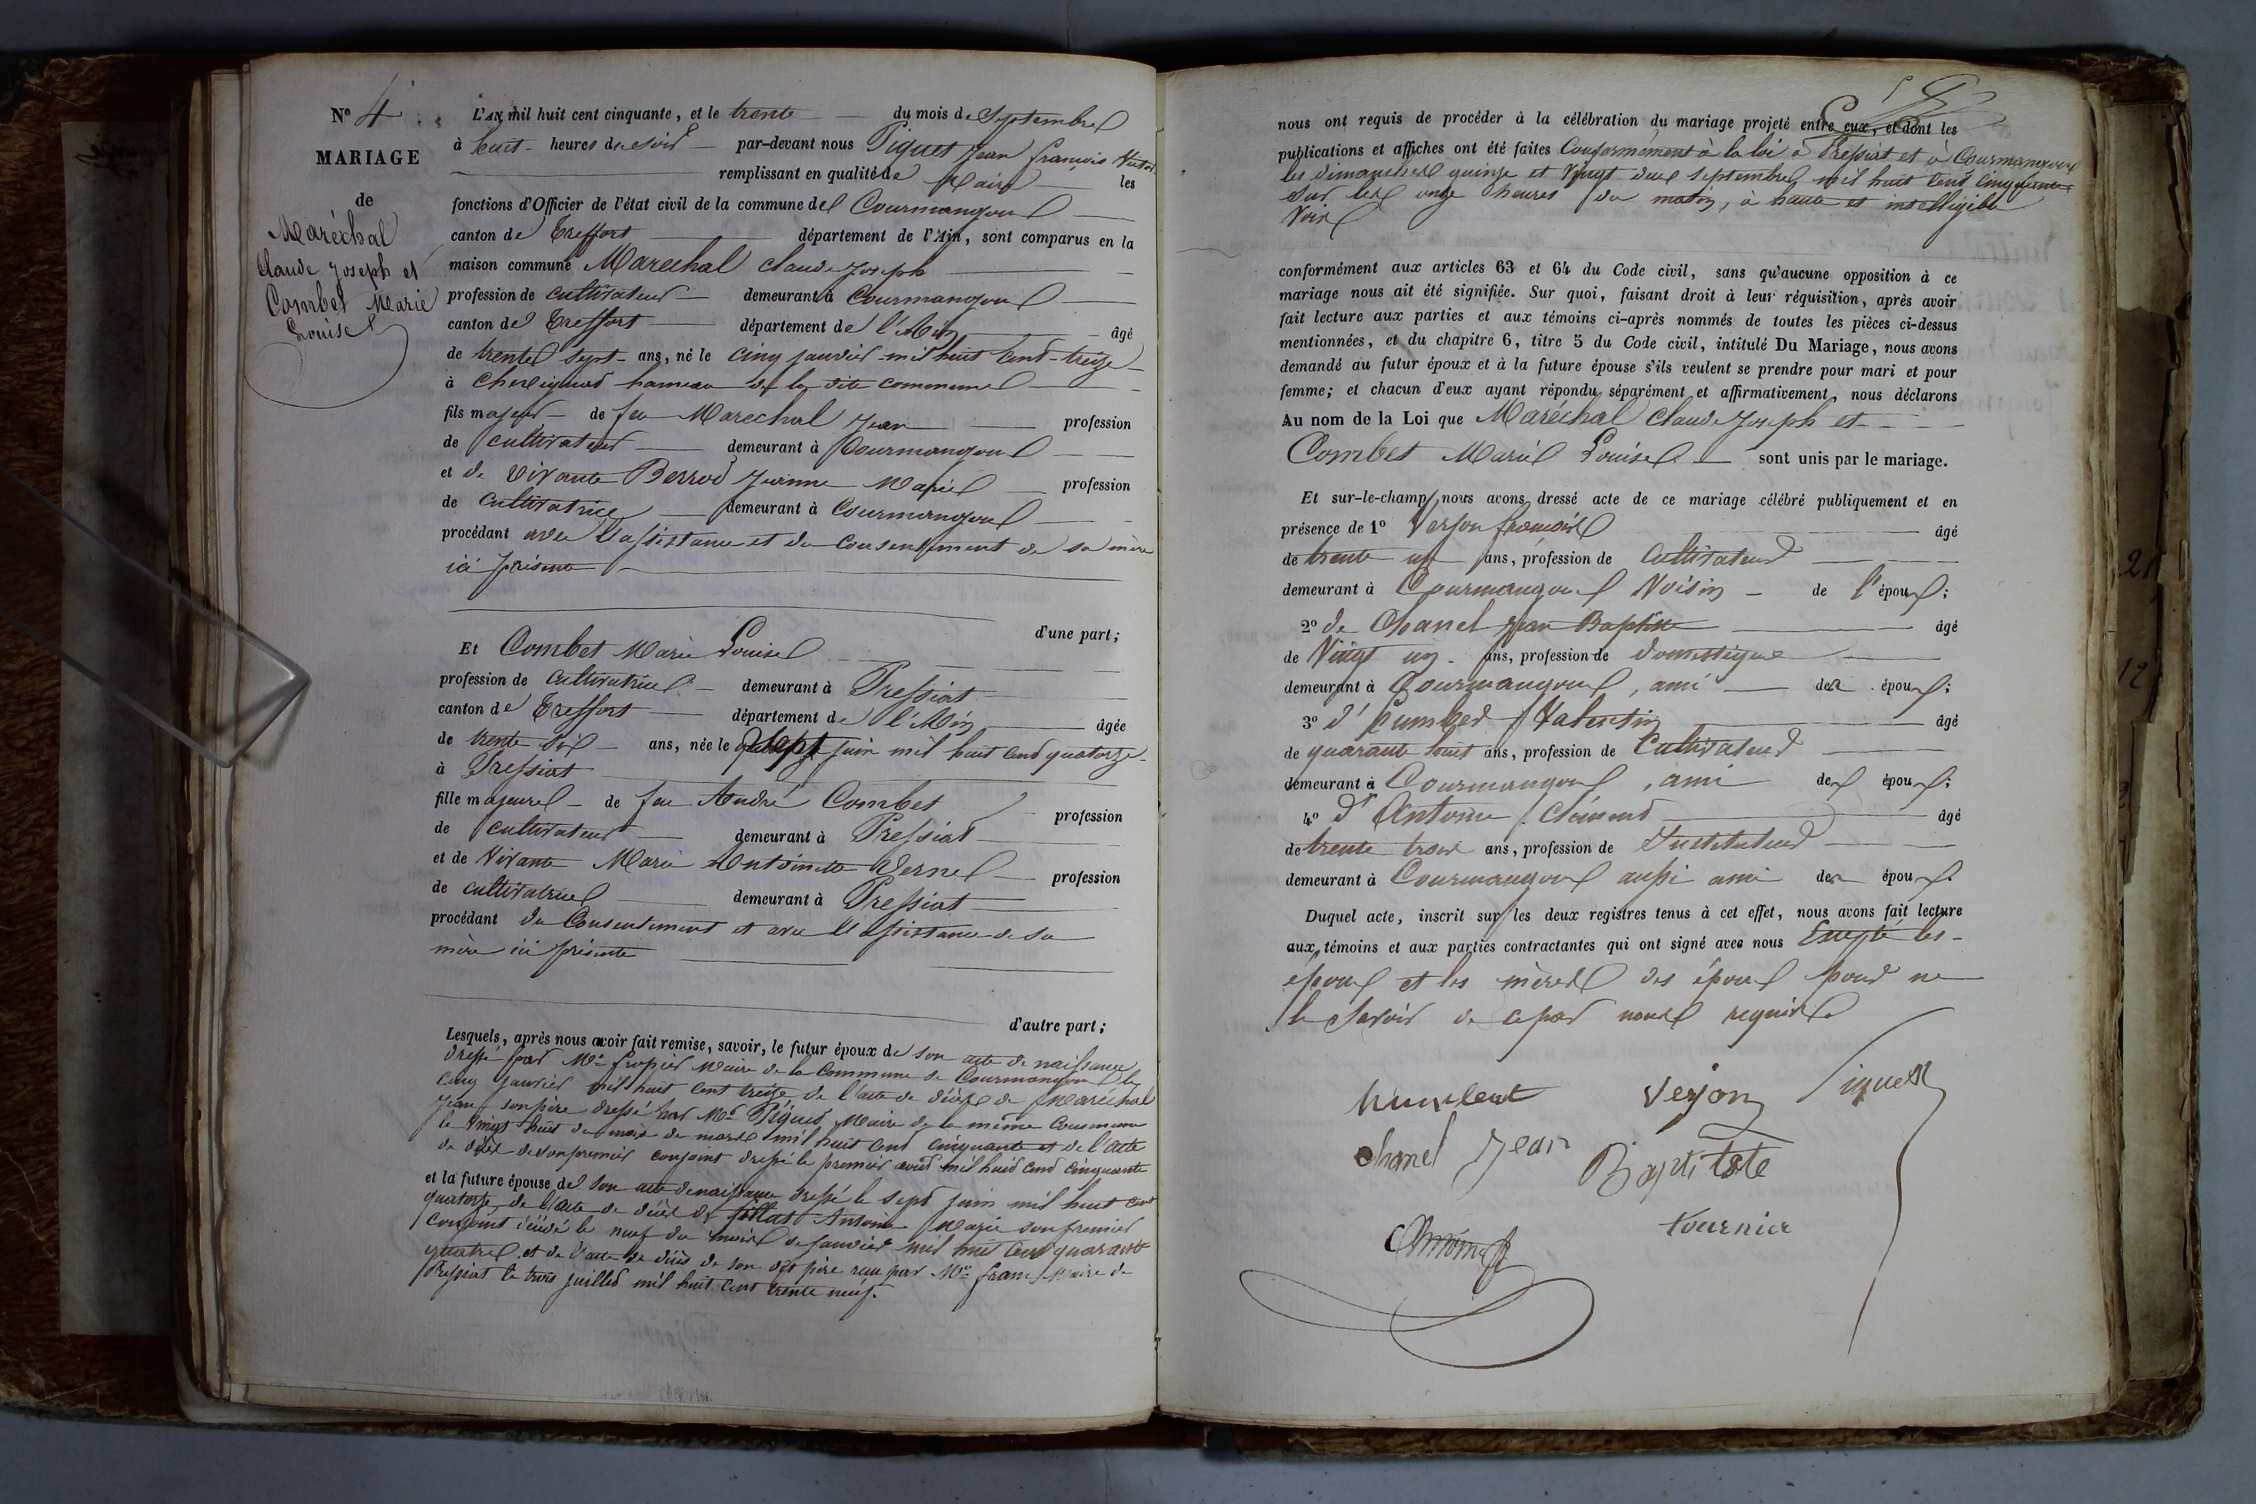 Nº 4
MARIAGE
de
Maréchal
Claude Joseph et
Combet Marie
Louise
L'AN mil huit cent cinquante, et le trente du mois de Septembre
à huit heures du soir par-devant nous Piquet Jean François Victor
remplissant en qualité de Maire les
fonctions d'Officier de l'état civil de la commune de Courmangoux
canton de Treffort département de l'Ain, sont comparus en la
maison commune Maréchal Claude Joseph
profession de cultivateur demeurant à Courmangoux
canton de Treffort département de l'Ain âgé
de trente sept ans, né le cinq janvier mil huit cent treize
à hameau de la dite commune
fils majeur de feu Maréchal Jean profession
de cultivateur demeurant à Courmangoux
et de vivante Berrod Jeanne Marie profession
de cultivatrice demeurant à Courmangoux
procédant avec l'assistance et du consentement de sa mère
ici présente
d'une part;
Et Combet Marie Louise
profession de cultivatrice demeurant à Pressiat
canton de Treffort département de l'Ain âgée
de trente six ans, née le sept juin mil huit cent quatorze
à Pressiat
fille majeure de feu André Combet profession
de cultivateur demeurant à Pressiat
et de vivante Marie Antoinette Vernel profession
de cultivatrice demeurant à Pressiat
procédant du consentement et avec l'assistance de sa
mère ici présente
d'autre part;
Lesquels, après nous avoir fait remise, savoir, le futur époux de son acte de naissance
dressé par Mr. maire de la commune de Courmangoux le
cinq janvier mil huit cent treize de l'acte de décès de Maréchal
Jean son père dressé par Mr. Piquet Maire de la même commune
le vingt huit du mois de mars mil huit cent cinquante et de l'acte
de décès de son premier conjoint dressé le premier avril mil huit cent cinquante
et la future épouse de son acte de naissance dressé le sept juin mil huit cent
quatorze, de l'acte de décès de Antoine Marie son premier
conjoint décédé le neuf du mois de janvier mil huit cent quarante
quatre et de l'acte de décès de son dit père reçu par Mr. franc Maire de
Pressiat le trois juillet mil huit cent trente neuf.
nous ont requis de procéder à la célébration du mariage projeté entre eux, et dont les
publications et affiches ont été faites Conformément à la loi à Pressiat et à Courmangoux
les dimanches quinze et vingt deux septembre mil huit cent cinquante
sur les onze heures du matin, à haute et intelligible
voix
conformément aux articles 63 et 64 du Code civil, sans qu'aucune opposition à ce
mariage nous ait été signifiée. Sur quoi, faisant droit à leur réquisition, après avoir
fait lecture aux parties et aux témoins ci-après nommés de toutes les pièces ci-dessus
mentionnées, et du chapitre 6, titre 5 du Code civil, intitulé Du Mariage, nous avons
demandé au futur époux et à la future épouse s'ils veulent se prendre pour mari et pour
femme; et chacun d'eux ayant répondu séparément et affirmativement, nous déclarons
Au nom de la Loi que Maréchal Claude Joseph et
Combet Marie Louise sont unis par le mariage.
Et sur-le-champ nous avons dressé acte de ce mariage célébré publiquement et en
présence de 1º Verjon françois âgé
de trente un ans, profession de cultivateur
demeurant à Courmangoux voisin de l'époux;
2º de Chanel Jean Baptiste âgé
de vingt un ans, profession de domestique
demeurant à Courmangoux, ami des époux;
3º d' humbert Valentin âgé
de quarante huit ans, profession de Cultivateur
demeurant à Courmangoux, ami des époux;
4º d' Antoine Clément âgé
de trente trois ans, profession de Instituteur
demeurant à Courmangoux aussi ami des époux.
Duquel acte, inscrit sur les deux registres tenus à cet effet, nous avons fait lecture
aux témoins et aux parties contractantes qui ont signé avec nous Excepté les
époux et les mères des époux pour ne
le savoir de ce par nous requis
humbert Verjon Piquet
chanel Jean Baptiste
Tournier
21
12